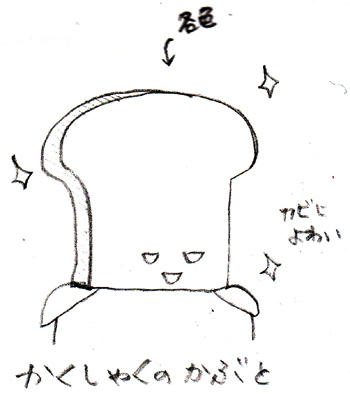 各色
カビに
よわい
かくしゃくのかぶと